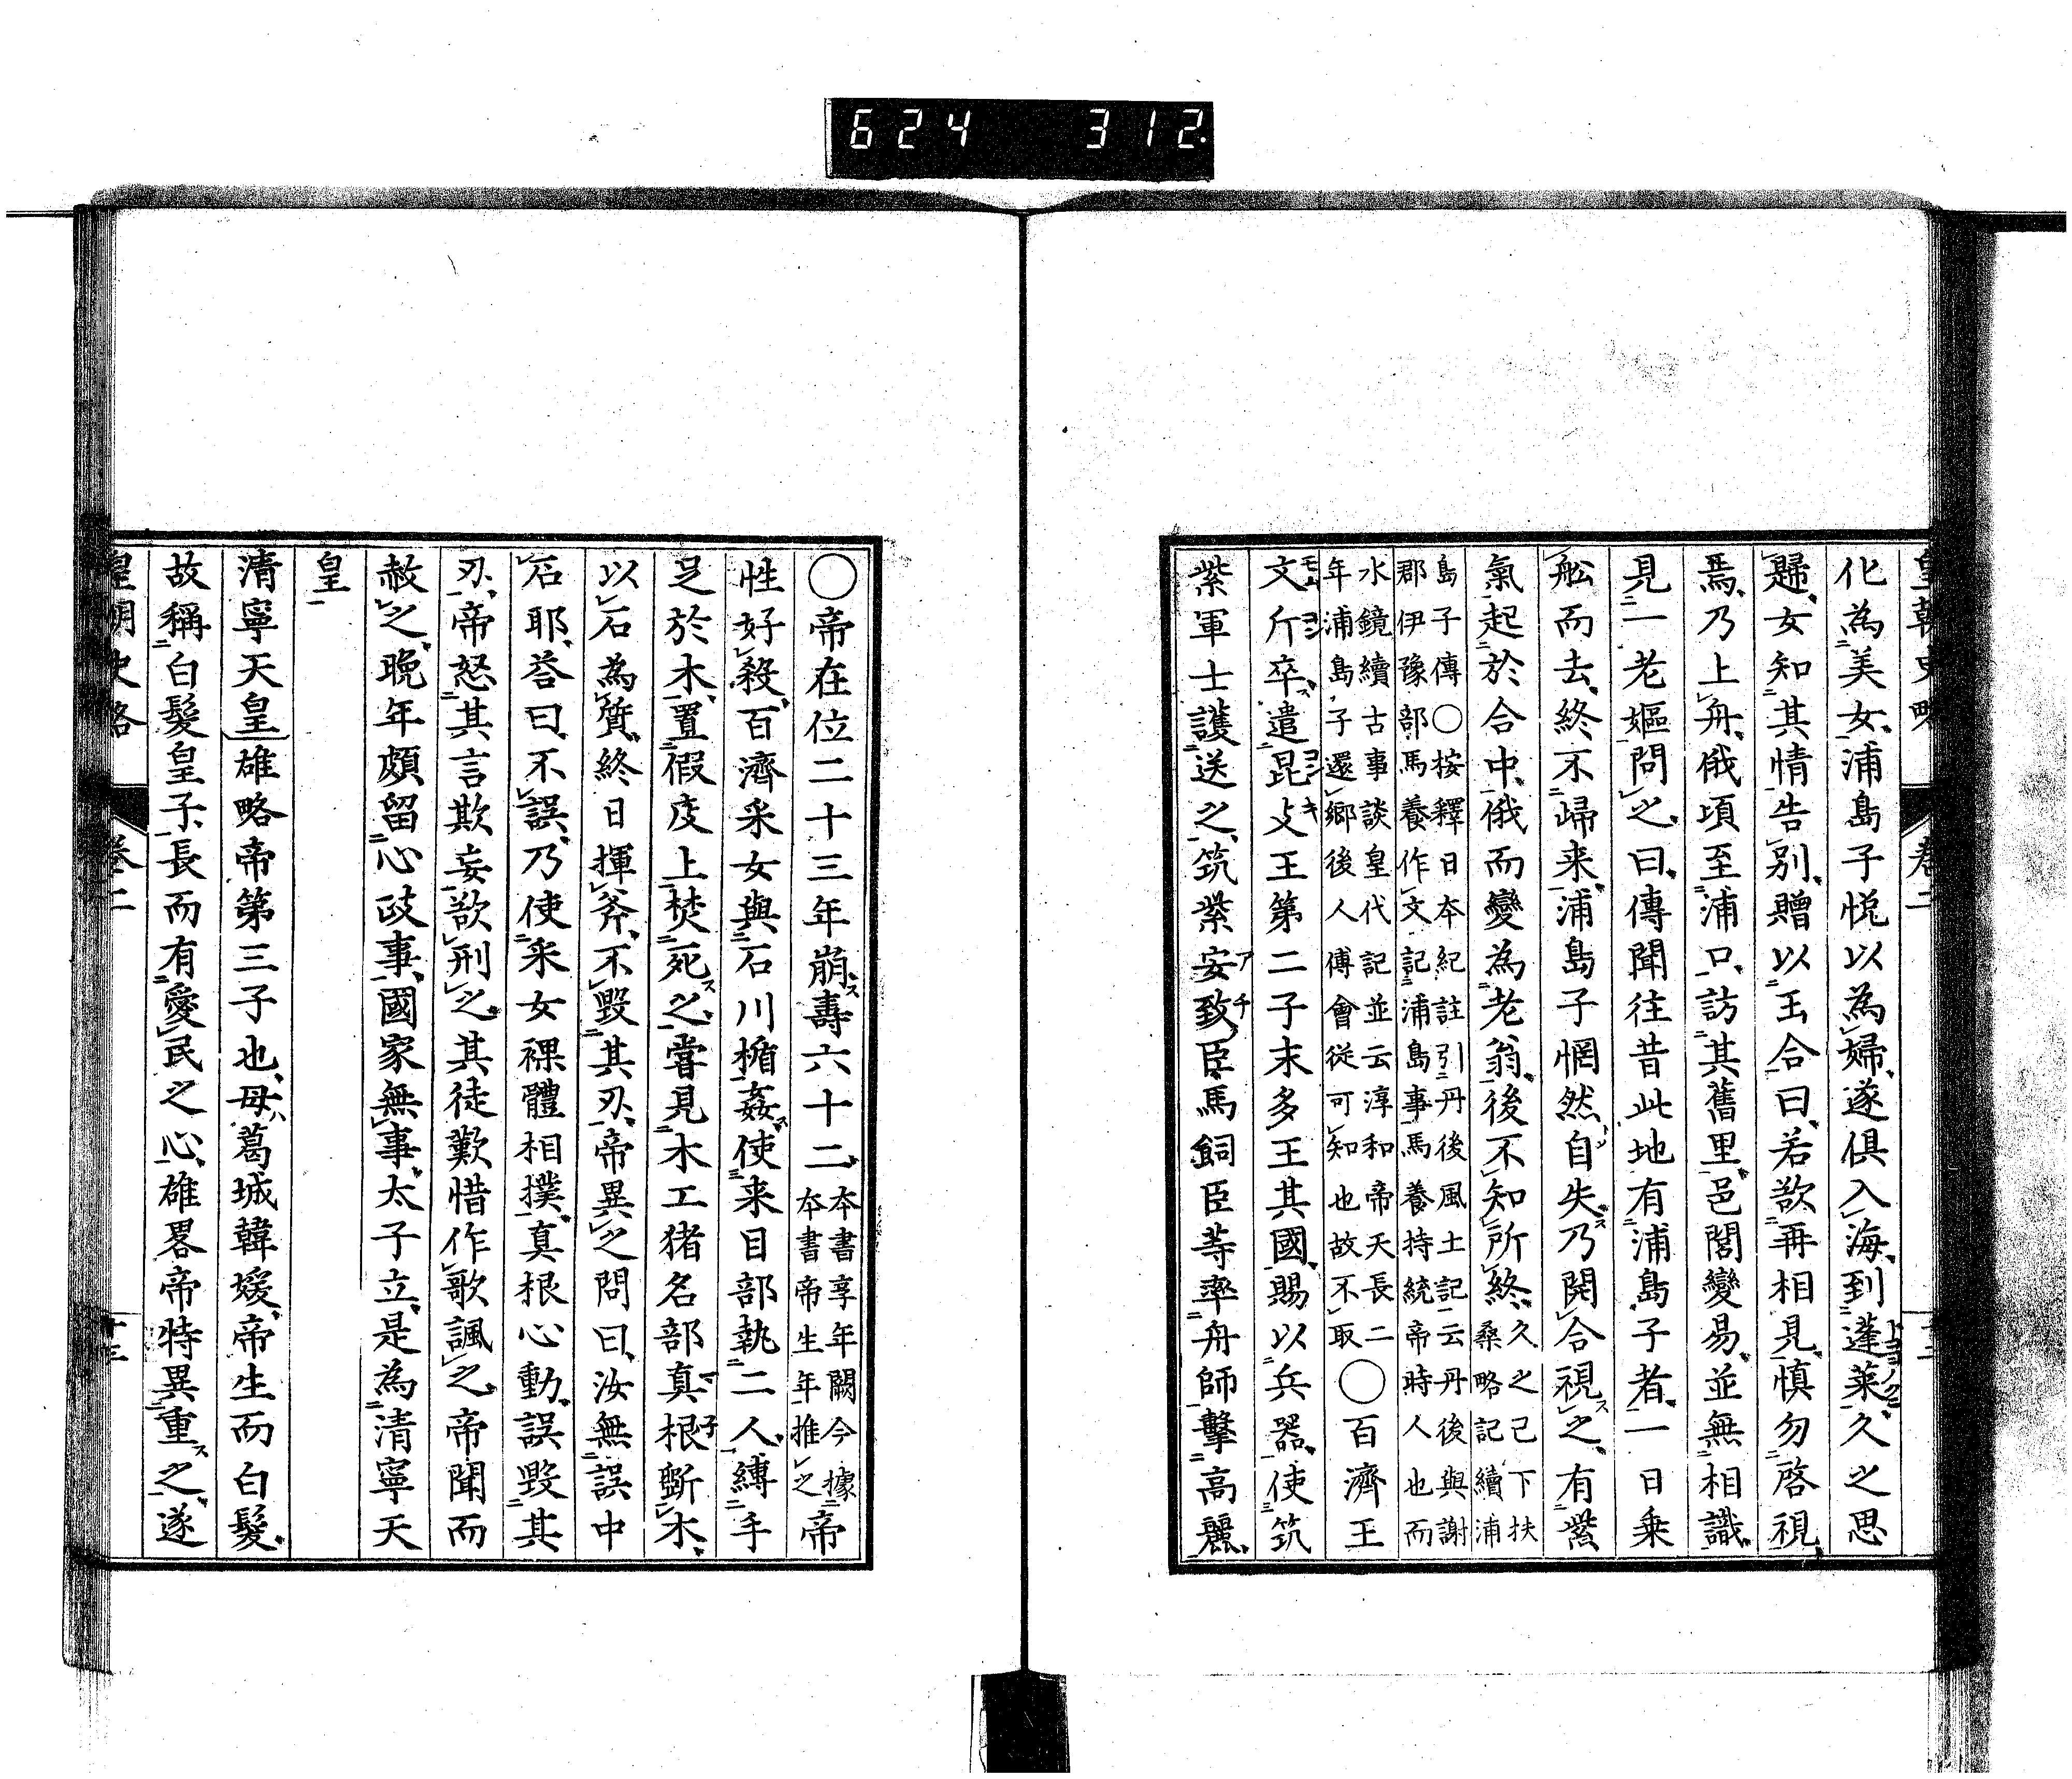 624 312
皇朝史略 卷二
化為美女浦島子悦以為婦遂俱入海到蓬萊久之思
歸女知其情告別贈以玉合曰若欲再相見慎勿啓視
焉乃上舟俄頃至浦口訪其舊里邑閭變易並無相識
見一老嫗問之曰傳聞往昔此地有浦島子者一日乘
舩而去終不歸来浦島子惘然自失乃開合視之有紫
氣起於合中俄而變為老翁後不知所終久之己下扶
桑略記續浦
島子傳〇按釋日本紀註引丹後風土記云丹後與謝
郡伊豫部馬養作文記浦島事馬養持統帝時人也而
水鏡續古事談皇代記並云淳和帝天長二
年浦島子還鄉後人傅會従可知也故不取〇百濟王
文斤卒遣昆攴王第二子末多王其國賜以兵器使筑
紫軍士護送之筑紫安致臣馬飼臣等率舟師擊高麗
〇帝在位二十三年崩壽六十二本書享年闕今據
本書帝生年推之帝
性好殺百濟釆女與石川楯姦使来目部執二人縛手
足於木置假庋上焚死之嘗見木工猪名部真根斲木
以石為質終日揮斧不毀其刃帝異之問曰汝無誤中
石耶荅曰不誤乃使釆女裸體相撲真根心動誤毀其
刃帝怒其言欺妄欲刑之其徒歎惜作歌諷之帝聞而
赦之晩年頗留心政事國家無事太子立是為清寧天
皇
清寧天皇雄略帝第三子也母葛城韓媛帝生而白髮
故稱白髮皇子長而有愛民之心雄畧帝特異重之遂
皇朝史略 卷二 十三